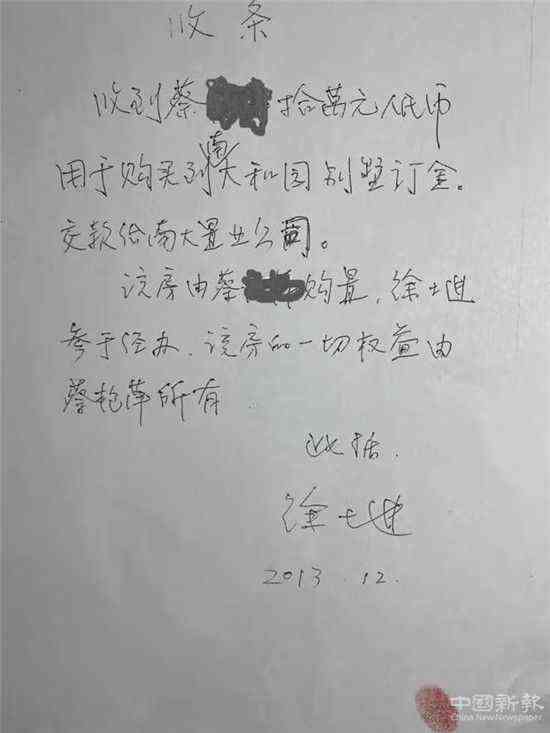 收条
收到蔡 拾萬元人民币
用于购买到南大和园别墅订金。
交款给南大置业公司。
该房由蔡 购置,徐土进
参于经办.该房的一切权益由
蔡艳萍所有
此据.
徐土进
2013.12.
中國新報
China New Newspaper